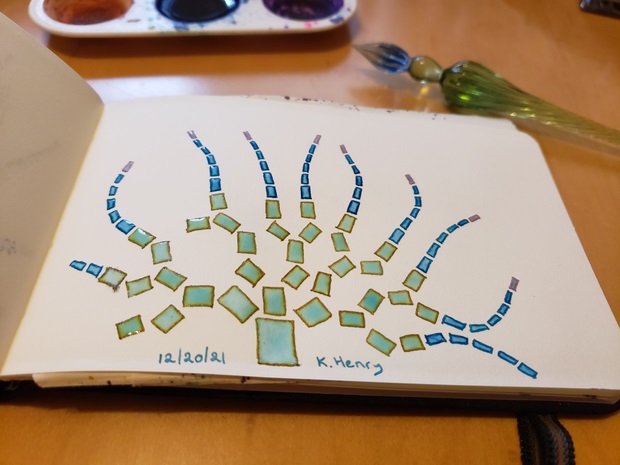 12/20/21
K. Henry